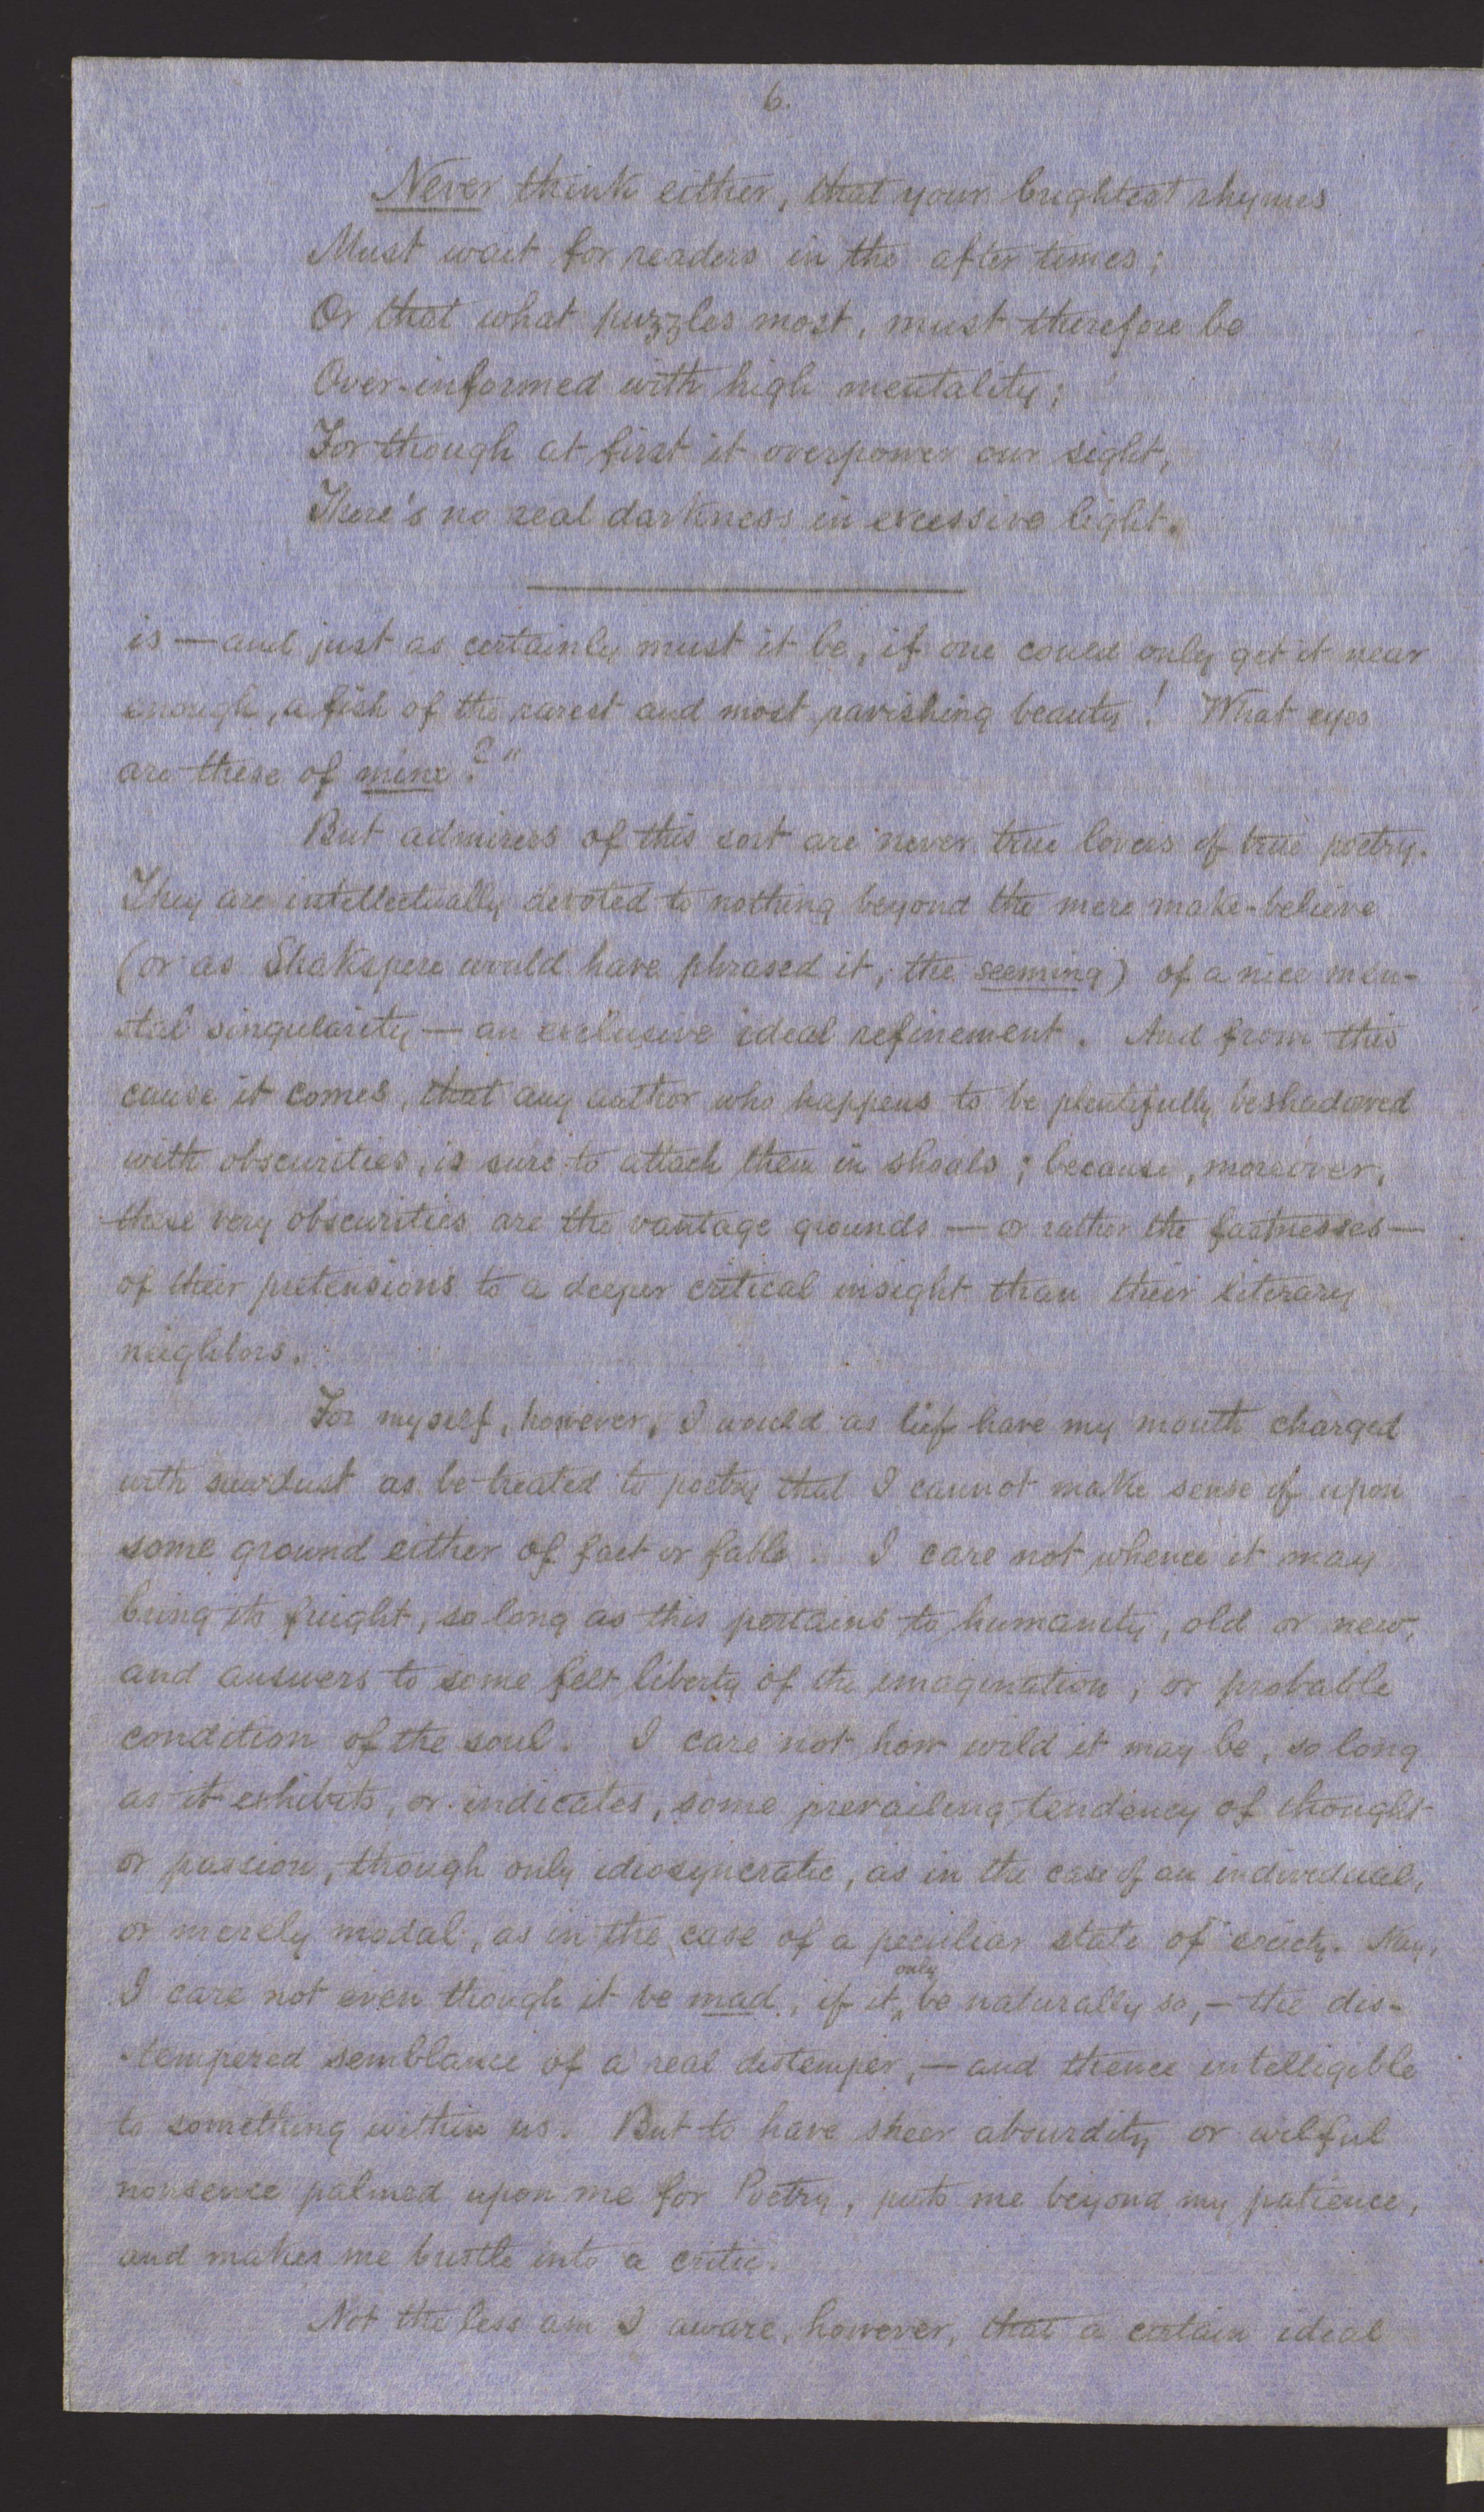 6.
Never think either, that your brightest rhymes
Must wait for readers in the after times;
Or that what puzzles most, must therefore be
Over-informed with high mentality;
For though at first it overpower our sight,
There's no real darkness in excessive light.
is — and just as certainly must it be, if one could only get it near
enough, a fish of the rarest and most ravishing beauty! What eyes
are these of mine?"
But admirers of this sort are never true lovers of true poetry.
They are intellectually devoted to nothing beyond the mere make-believe
(or as Shakspere would have phrased it, the seeming) of a nice men-
-tal singularity — an exclusive ideal refinement. And from this
cause it comes, that any author who happens to be plentifully beshadowed
with obscurities, is sure to attach them in shoals; because, moreover,
these very obscurities are the vantage grounds — or rather the fastnesses —
of their pretensions to a deeper critical insight than their literary
neighbors.
For myself, however, I would as lief have my mouth charged
with sawdust as be treated to poetry that I cannot make sense of upon
some ground either of fact or fable. I care not whence it may
bring its freight, so long as this pertains to humanity, old or new,
and answers to some felt liberty of the imagination, or probable
condition of the soul. I care not how wild it may be, so long
as it exhibits, or indicates, some prevailing tendency of thought
or passion, though only idiosyncratic, as in the case of an individual,
or merely modal, as in the case of a peculiar state of society. Nay,
I care not even though it be mad, if it only be naturally so, — the dis-
-tempered semblance of a real distemper, — and thence intelligible
to something within us. But to have sheer absurdity or wilful
nonsence palmed upon me for Poetry, puts me beyond my patience,
and makes me bustle into a critic.
Not the less am I aware, however, that a certain ideal